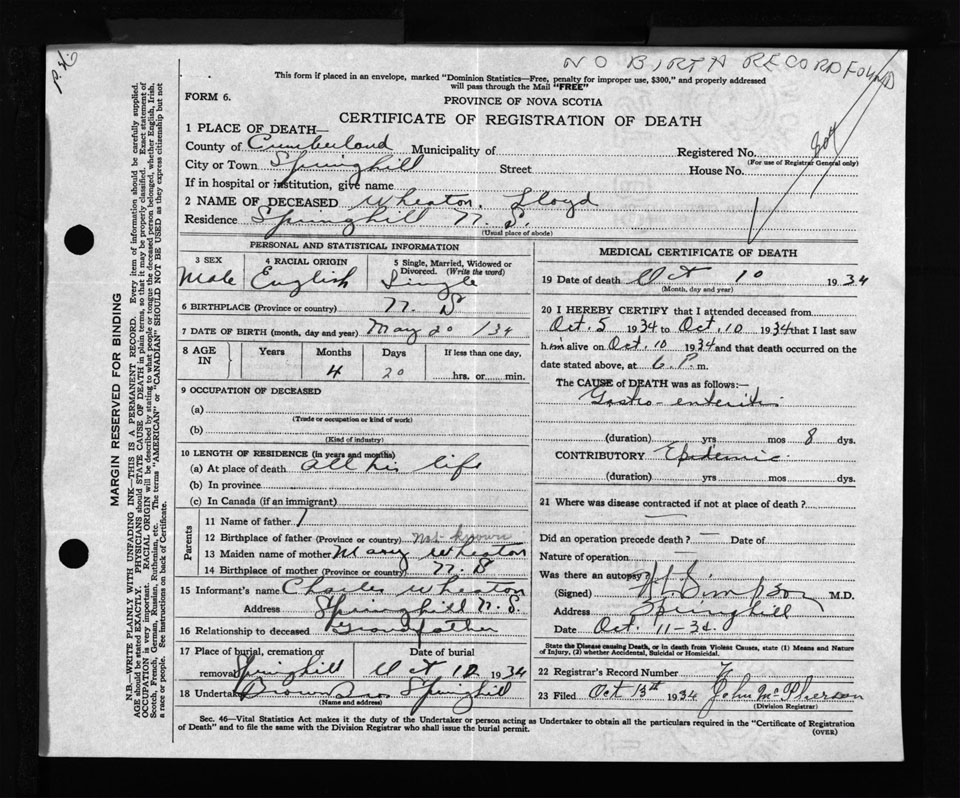 NO BIRTH RECORD FOUND
This form if placed in an envelope, marked "Dominion Statistics—Free, penalty for improper use, $300," and properly addressed
will pass through the Mail "FREE"
FORM 6.
PROVINCE OF NOVA SCOTIA
CERTIFICATE OF REGISTRATION OF DEATH
1 PLACE OF DEATH—
County of Cumberland Municipality of
Registered No. 804
(For use of Registrar General only)
City or Town Springhill Street House No.
If in hospital or institution, give name
2 NAME OF DECEASED Wheaton, Lloyd
Residence Springhill N. S.
(Usual place of abode)
PERSONAL AND STATISTICAL INFORMATION
3 SEX
Male
4 RACIAL ORIGIN
English
5 Single, Married, Widowed or
Divorced. (Write the word)
Single
6 BIRTHPLACE (Province or country) N. S
7 DATE OF BIRTH (month, day and year) May 20 /34
8 AGE IN Years Months Days If less than one day,
4 20 hrs. or min.
9 OCCUPATION OF DECEASED
(a)
(Trade or occupation or kind of work)
(b)
(Kind of industry)
10 LENGTH OF RESIDENCE (in years and months)
(a) At place of death all his life
(b) In province
(c) In Canada (if an immigrant)
Parents
11 Name of father
12 Birthplace of father (Province or country) Not known
13 Maiden name of mother Mary Wheaton
14 Birthplace of mother (Province or country) N. S
15 Informant's name Charles Wheaton
Address Springhill N. S.
16 Relationship to deceased Grandfather
17 Place of burial, cremation or Date of burial
removal Springhill Oct 12 1934
18 Undertaker Brown Bros Springhill
(Name and address)
MEDICAL CERTIFICATE OF DEATH
19 Date of death Oct 10 1934
(Month, day and year)
20 I HEREBY CERTIFY that I attended deceased from
Oct. 5 1934 to Oct. 10 1934 that I last saw
him alive on Oct. 10 1934 and that death occurred on the
date stated above, at 6 P. m.
The CAUSE of DEATH was as follows:—
Gastro-enteritis
(duration) yrs mos 8 dys.
CONTRIBUTORY Epidemic.
(duration) yrs. mos dys.
21 Where was disease contracted if not at place of death?
Did an operation precede death? — Date of
Nature of operation
Was there an autopsy?
(Signed) Simpson M.D.
Address Springhill
Date Oct. 11-34.
State the Disease causing Death, or in death from Violent Causes, state (1) Means and Nature
of Injury, (2) whether Accidental, Suicidal or Homicidal.
22 Registrar's Record Number
23 Filed Oct 13th 1934 John McPherson
(Division Registrar)
Sec. 46—Vital Statistics Act makes it the duty of the Undertaker or person acting as Undertaker to obtain all the particulars required in the "Certificate of Registration
of Death" and to file the same with the Division Registrar who shall issue the burial permit.
(OVER)
MARGIN RESERVED FOR BINDING
N.B.—WRITE PLAINLY WITH UNFADING INK—THIS IS A PERMANENT RECORD. Every item of information should be carefully supplied.
AGE should be stated EXACTLY. PHYSICIANS should STATE CAUSE OF DEATH in plain terms, so that it may be properly classified. Exact statement of
OCCUPATION is very important. RACIAL ORIGIN will be described by stating to what people or tongue the deceased person belonged, whether English, Irish,
Scotch, French, German, Russian, Ruthenian, etc. The terms "AMERICAN" or "CANADIAN" SHOULD NOT BE USED as they express citizenship but not
a race or people. See instructions on back of Certificate.